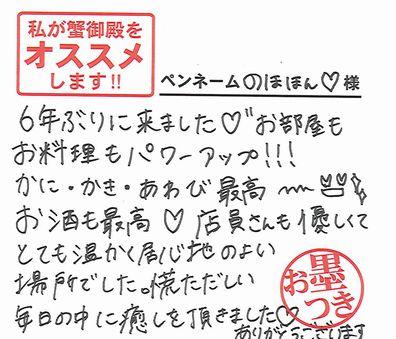 私が蟹御殿を
オススメ
します!!
ペンネーム のほほん♡ 様
6年ぶりに来ました♡お部屋も
お料理もパワーアップ!!!
かに・かき・あわび 最高
お酒も最高♡店員さんも優しくて
とても温かく居心地のよい
場所でした。慌ただしい
毎日の中に癒しを頂きました♡
ありがとうございます
お墨つき